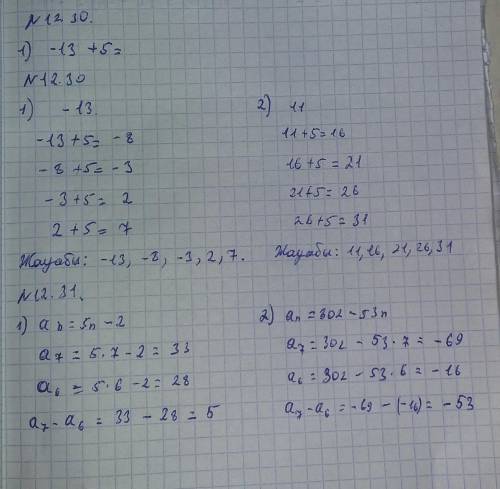 N12.30.
1) -13 +5=
N12.30
1) -13.
-13+5= -8
-8+5= -3
-3+5= 2
2+5= 7
Жауабы: -13, -8, -3, 2, 7.
2) 11
11+5=16
16+5=21
21+5=26
26+5=31
Жауабы: 11, 16, 21, 26, 31
N12.31.
1) an = 5n - 2
a7 = 5 · 7 - 2 = 33
a6 = 5 · 6 - 2 = 28
a7 - a6 = 33 - 28 = 5
2) an = 302 - 53n
a7 = 302 - 53 · 7 = -69
a6 = 302 - 53 · 6 = -16
a7 - a6 = -69 - (-16) = -53